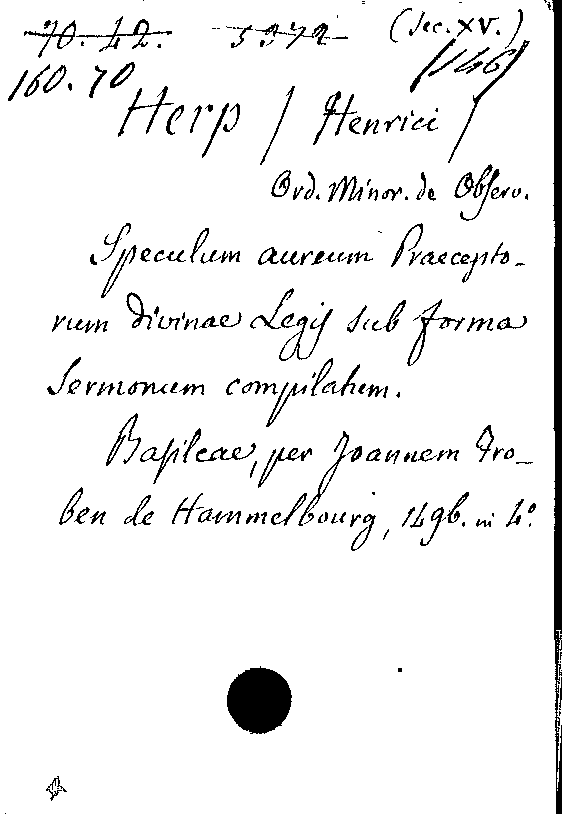 70. 42. 5372 (Sec. XV.)
160. 70 (146)
Herp / Henrici /
Ord. Minor. de Observ.
Speculum aureum Praecepto-
rum divinae Legis sub forma
Sermonum compilatum.
Basileae, per Joannem Fro-
ben de Hammelbourg, 1496. in 4°.